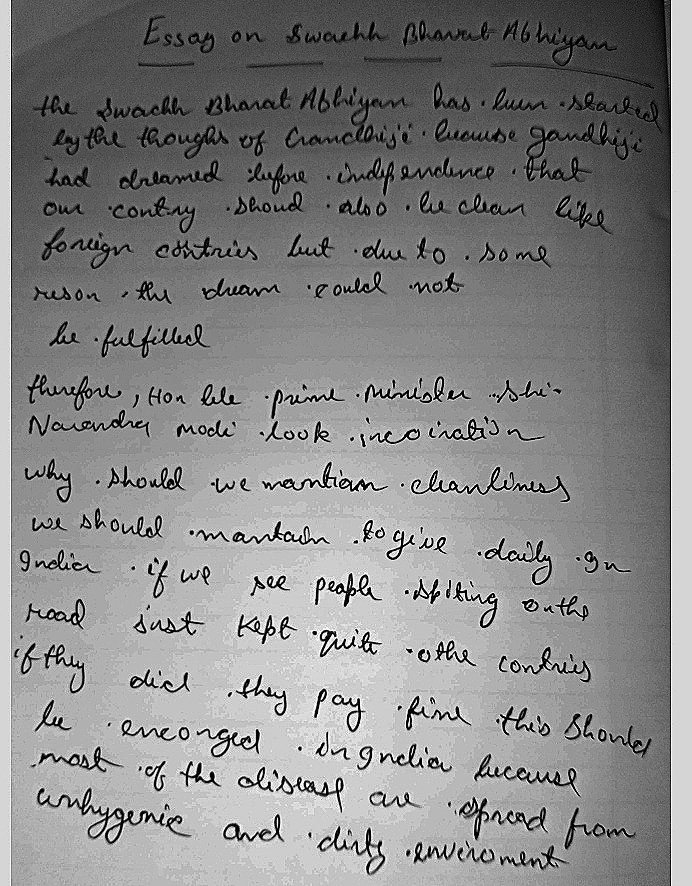 Essay on Swachh Bharat Abhiyan
the Swachh Bharat Abhiyan has been started
by the thoughs of Grandhiji because gandhiji
had dreamed before independence that
our contry shoud also be clean like
foreign contries but due to some
reson the dream could not
be fulfilled
therefore, Hon ble prime Minister shi-
Narendra modi took incoiration
why should we mantian cleanliness
we should mantain to give daily in
India if we see people spiting on the
road just kept quite othe contries
if they did they pay fine this should
be enconged in India because
most of the diseasp are spread from
unhygenic and dirty enviroment